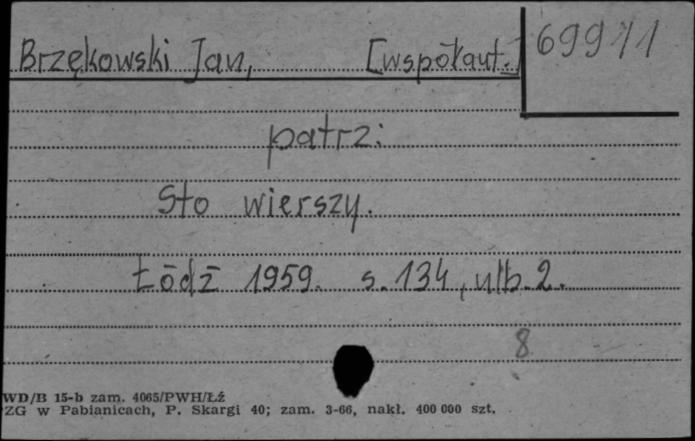 Brzękowski Jan, [współaut.] 69911
patrz:
Sto wierszy.
Łódź 1959. s. 134, nlb. 2.
8
WD/B 15-b zam. 4065/PWH/ŁŹ
ZG w Pabianicach, P. Skargi 40; zam. 3-66, nakł. 400 000 szt.